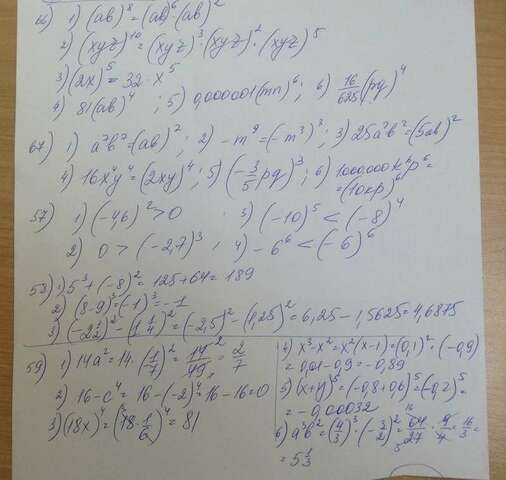 66) 1) (ab)⁸ = (ab)⁶ (ab)²
2) (xyz)¹⁰ = (xyz)³ · (xyz)² · (xyz)⁵
3) (2x)⁵ = 32 · x⁵
4) 81(ab)⁴ ; 5) 0,000001(mn)⁶ ; 6) 16/625 (pq)⁴
67) 1) a²b² = (ab)² ; 2) - m⁹ = (-m³)³ ; 3) 25a²b² = (5ab)²
4) 16x⁴y⁴ = (2xy)⁴ ; 5) (-3/5 pq)³ ; 6) 1000000k⁶p⁶ =
= (10kp)⁶
57) 1) (-4,6)² > 0 3) (-10)⁵ < (-8)⁴
2) 0 > (-2,7)³ ; 4) - 6⁶ < (-6)⁶
58) 1) 5³ + (-8)² = 125 + 64 = 189
2) (8-9)³ = (-1)³ = -1
3) (-2 1/2)² - (1 1/4)² = (-2,5)² - (1,25)² = 6,25 - 1,5625 = 4,6875
59) 1) 14a² = 14 · (1/7)² = 14/49 = 2/7
2) 16 - c⁴ = 16 - (-2)⁴ = 16 - 16 = 0
3) (18x)⁴ = (18 · 1/6)⁴ = 81
4) x³ - x² = x²(x-1) = (0,1)² = (-0,9)
= 0,01 - 0,9 = - 0,89
5) (x+y)⁵ = (-0,8+0,6)⁵ = (-0,2)⁵ =
= - 0,00032
6) a³b² = (4/3)³ · (-3/2)² = 64/27 · 9/4 = 16/3 =
= 5 1/3